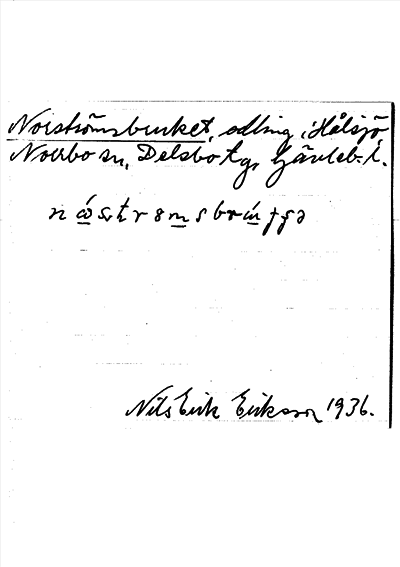 Norströmsbruket, odling i Hålsjö
Norrbo sn, Delsbo tg, Gävleb. l.
Nils Erik Eriksson 1936.